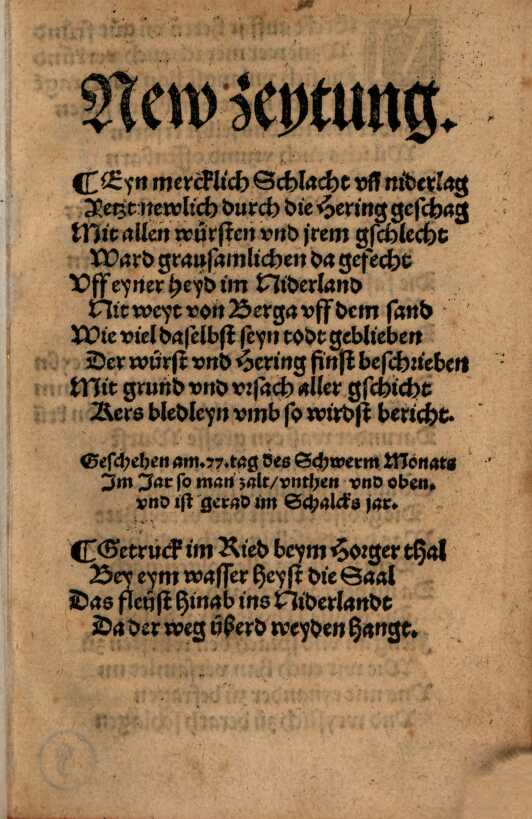 New zeytung.
¶ Eyn mercklich Schlacht vff niderlag
Yetzt newlich durch die Hering geschag
Mit allen würsten vnd jrem gschlecht
Ward grausamlichen da gefecht
Vff eyner heyd im Niderland
Nit weyt von Berga vff dem sand
Wie viel daselbst seyn todt geblieben
Der würst vnd Hering finst beschrieben
Mit grund vnd vrsach aller gschicht
Kers bledleyn vmb so wirdst bericht.
Geschehen am .77. tag des Schwerm Monats
Im Jar so man zalt / vnthen vnd oben.
vnd ist gerad im Schalcks jar.
¶ Getruck im Ried beym Horger thal
Bey eym wasser heyst die Saal
Das fleüst hinab ins Niderlandt
Da der weg überd weyden hangt.